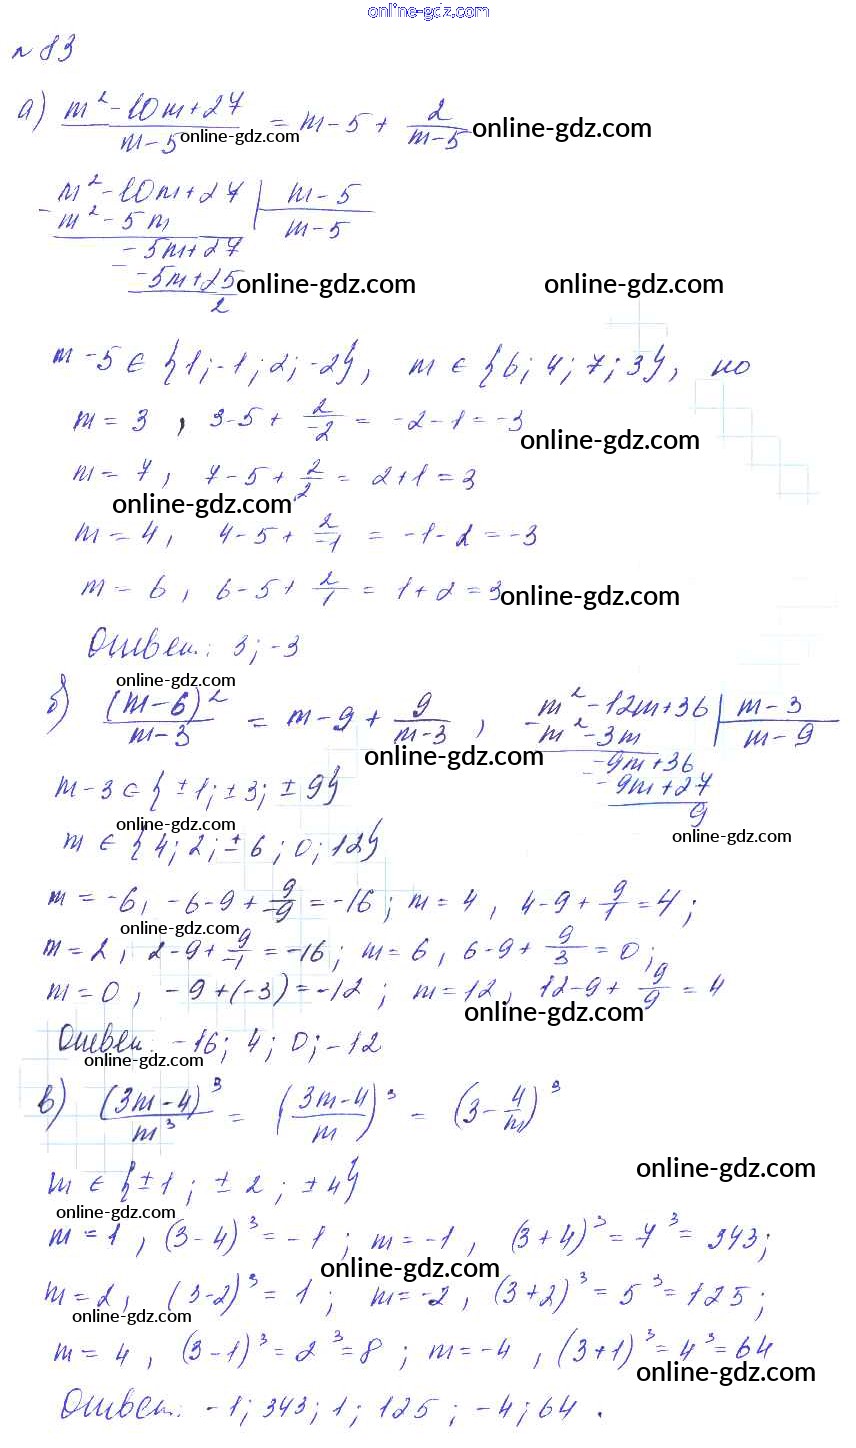 online-gdz.com
№ 83
а) (m² - 10m + 27)/(m - 5) = m - 5 + 2/(m - 5)
online-gdz.com online-gdz.com
m² - 10m + 27 | m - 5
- m² - 5m | m - 5
- 5m + 27
- -5m + 25
2
online-gdz.com online-gdz.com
m - 5 ∈ {1; -1; 2; -2}, m ∈ {6; 4; 7; 3}, но
m = 3, 3 - 5 + 2/-2 = -2 - 1 = -3
online-gdz.com
m = 7, 7 - 5 + 2/2 = 2 + 1 = 3
online-gdz.com
m = 4, 4 - 5 + 2/-1 = -1 - 2 = -3
m = 6, 6 - 5 + 2/1 = 1 + 2 = 3
online-gdz.com
Ответ: 3; -3
online-gdz.com
б) (m - 6)²/(m - 3) = m - 9 + 9/(m - 3),
m² - 12m + 36 | m - 3
- m² - 3m | m - 9
-9m + 36
- -9m + 27
9
online-gdz.com
m - 3 ∈ {±1; ±3; ±9}
online-gdz.com online-gdz.com
m ∈ {4; 2; ±6; 0; 12}
m = -6, -6 - 9 + 9/-9 = -16; m = 4, 4 - 9 + 9/1 = 4;
online-gdz.com
m = 2, 2 - 9 + 9/-1 = -16; m = 6, 6 - 9 + 9/3 = 0;
m = 0, -9 + (-3) = -12; m = 12, 12 - 9 + 9/9 = 4
online-gdz.com
Ответ: -16; 4; 0; -12
online-gdz.com
в) (3m - 4)³/m³ = ((3m - 4)/m)³ = (3 - 4/m)³
online-gdz.com
m ∈ {±1; ±2; ±4}
online-gdz.com
m = 1, (3 - 4)³ = -1; m = -1, (3 + 4)³ = 7³ = 343;
online-gdz.com
m = 2, (3 - 2)³ = 1; m = -2, (3 + 2)³ = 5³ = 125;
online-gdz.com
m = 4, (3 - 1)³ = 2³ = 8; m = -4, (3 + 1)³ = 4³ = 64
online-gdz.com
Ответ: -1; 343; 1; 125; -4; 64.